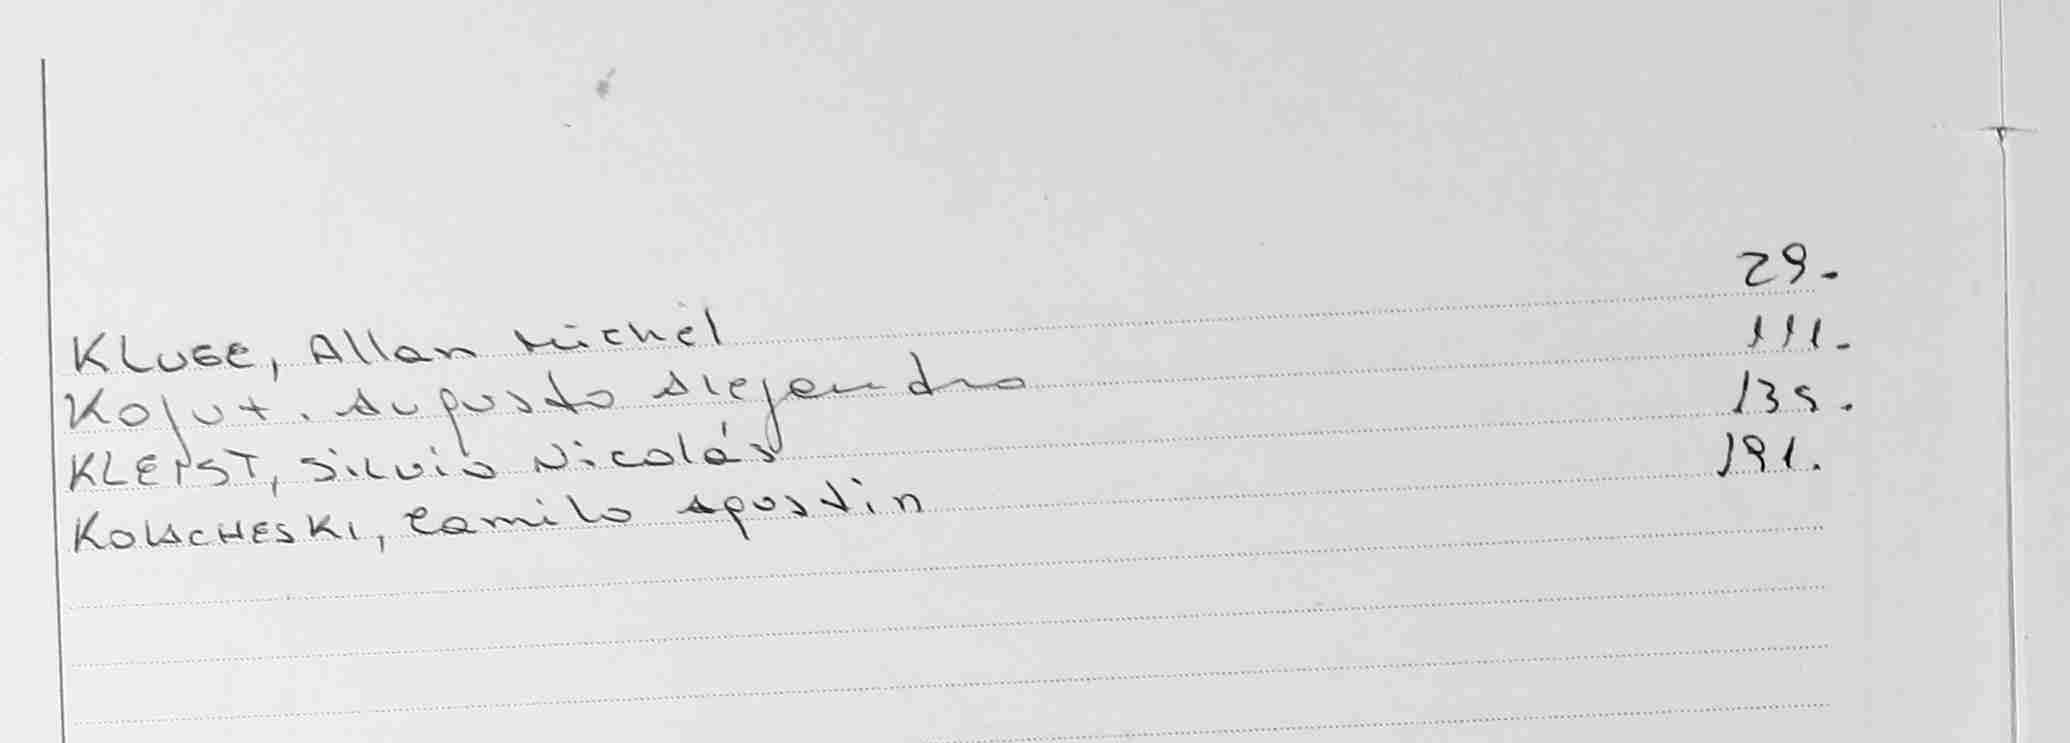 KLUGE, Allan Michel 29.
Kojut. Augusto Alejandro 111.
KLEIST, Silvio Nicolás 135.
KOLACHESKI, Camilo Agustin 191.